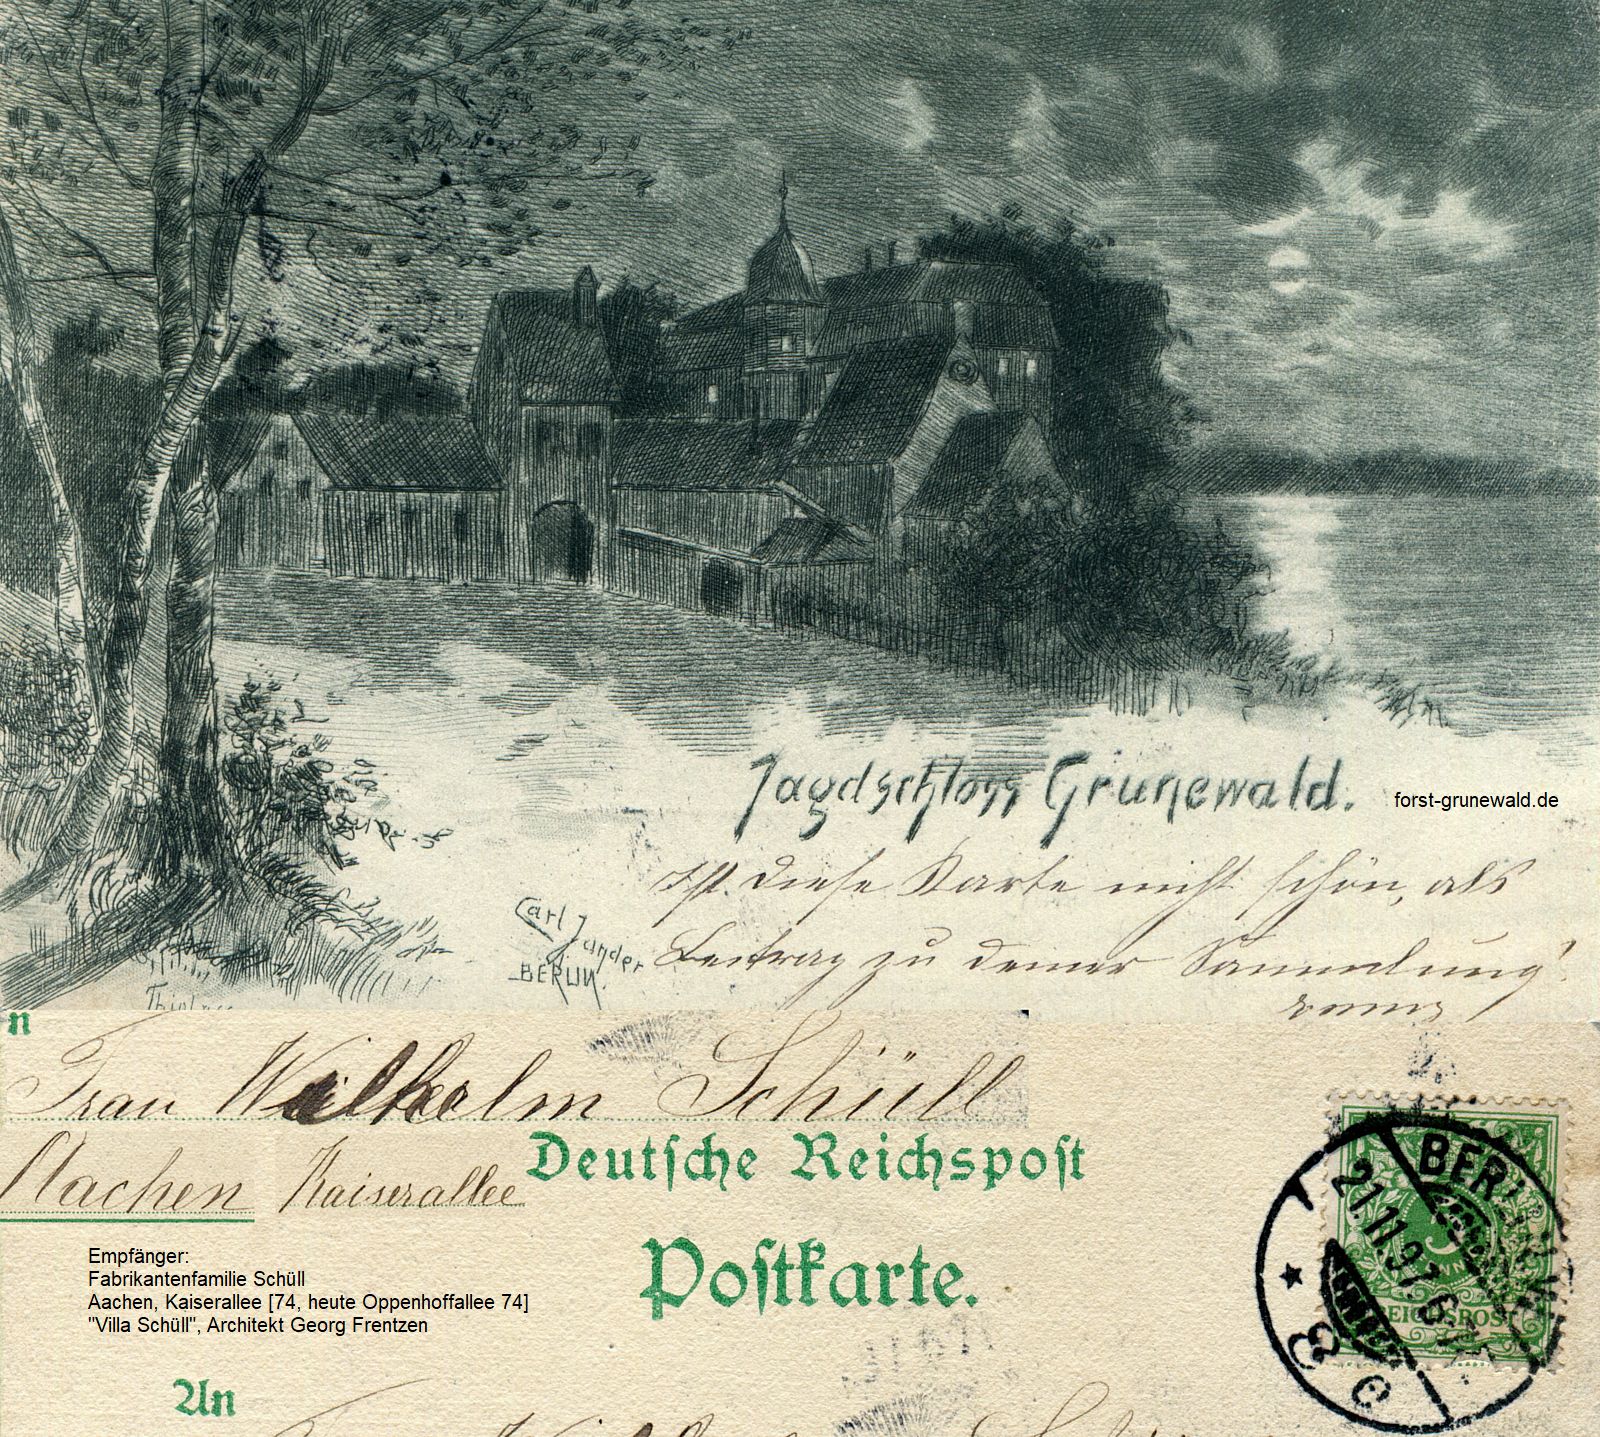 Jagdschloss Grunewald.
forst-grunewald.de
Ist diese Karte nicht schön, als
Beitrag zu deiner Sammlung!
Carl Jander
BERLIN.
n
Frau Wilhelm Schüll
Deutsche Reichspost
Aachen Kaiserallee
Postkarte.
Empfänger:
Fabrikantenfamilie Schüll
Aachen, Kaiserallee [74, heute Oppenhoffallee 74]
"Villa Schüll", Architekt Georg Frentzen
An
BERLIN
21.11.97
REICHSPOST